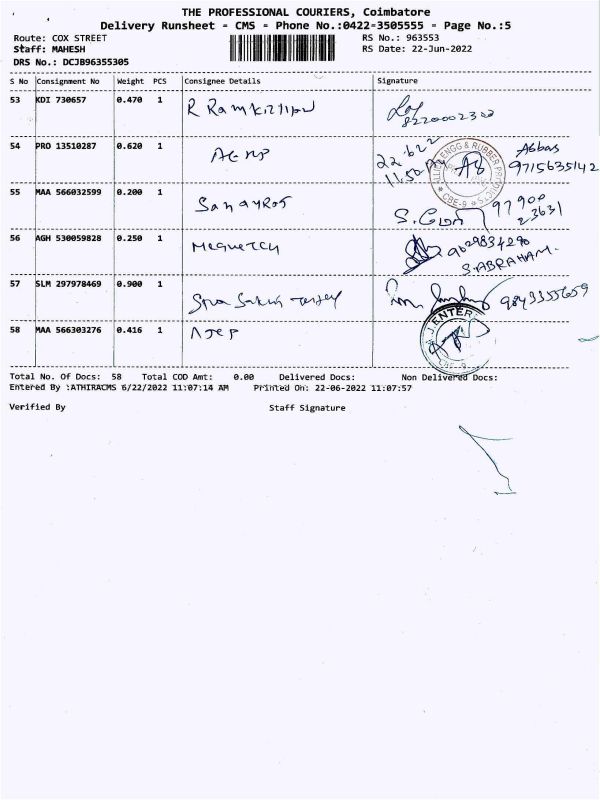 THE PROFESSIONAL COURIERS, Coimbatore
Delivery Runsheet - CMS - Phone No.:0422-3505555 - Page No.:5
Route: COX STREET RS No.: 963553
Staff: MAHESH RS Date: 22-Jun-2022
DRS No.: DCJB96355305
S No Consignment No Weight PCS Consignee Details Signature
53 KDI 730657 0.470 1
8220002300
54 PRO 13510287 0.620 1 22.6.22 Abbas
11.50 AB 9715635142
ALLIED ENGG & RUBBER PRODUCTS CBE-9
55 MAA 566032599 0.200 1 97900
23631
56 AGH 530059828 0.250 1 9629834290
S.ABRAHAM.
57 SLM 297978469 0.900 1 9843355659
58 MAA 566303276 0.416 1 AJEP
A.J.ENTER CBE-9
Total No. Of Docs: 58 Total COD Amt: 0.00 Delivered Docs: Non Delivered Docs:
Entered By :ATHIRACMS 6/22/2022 11:07:14 AM Printed On: 22-06-2022 11:07:57
Verified By Staff Signature